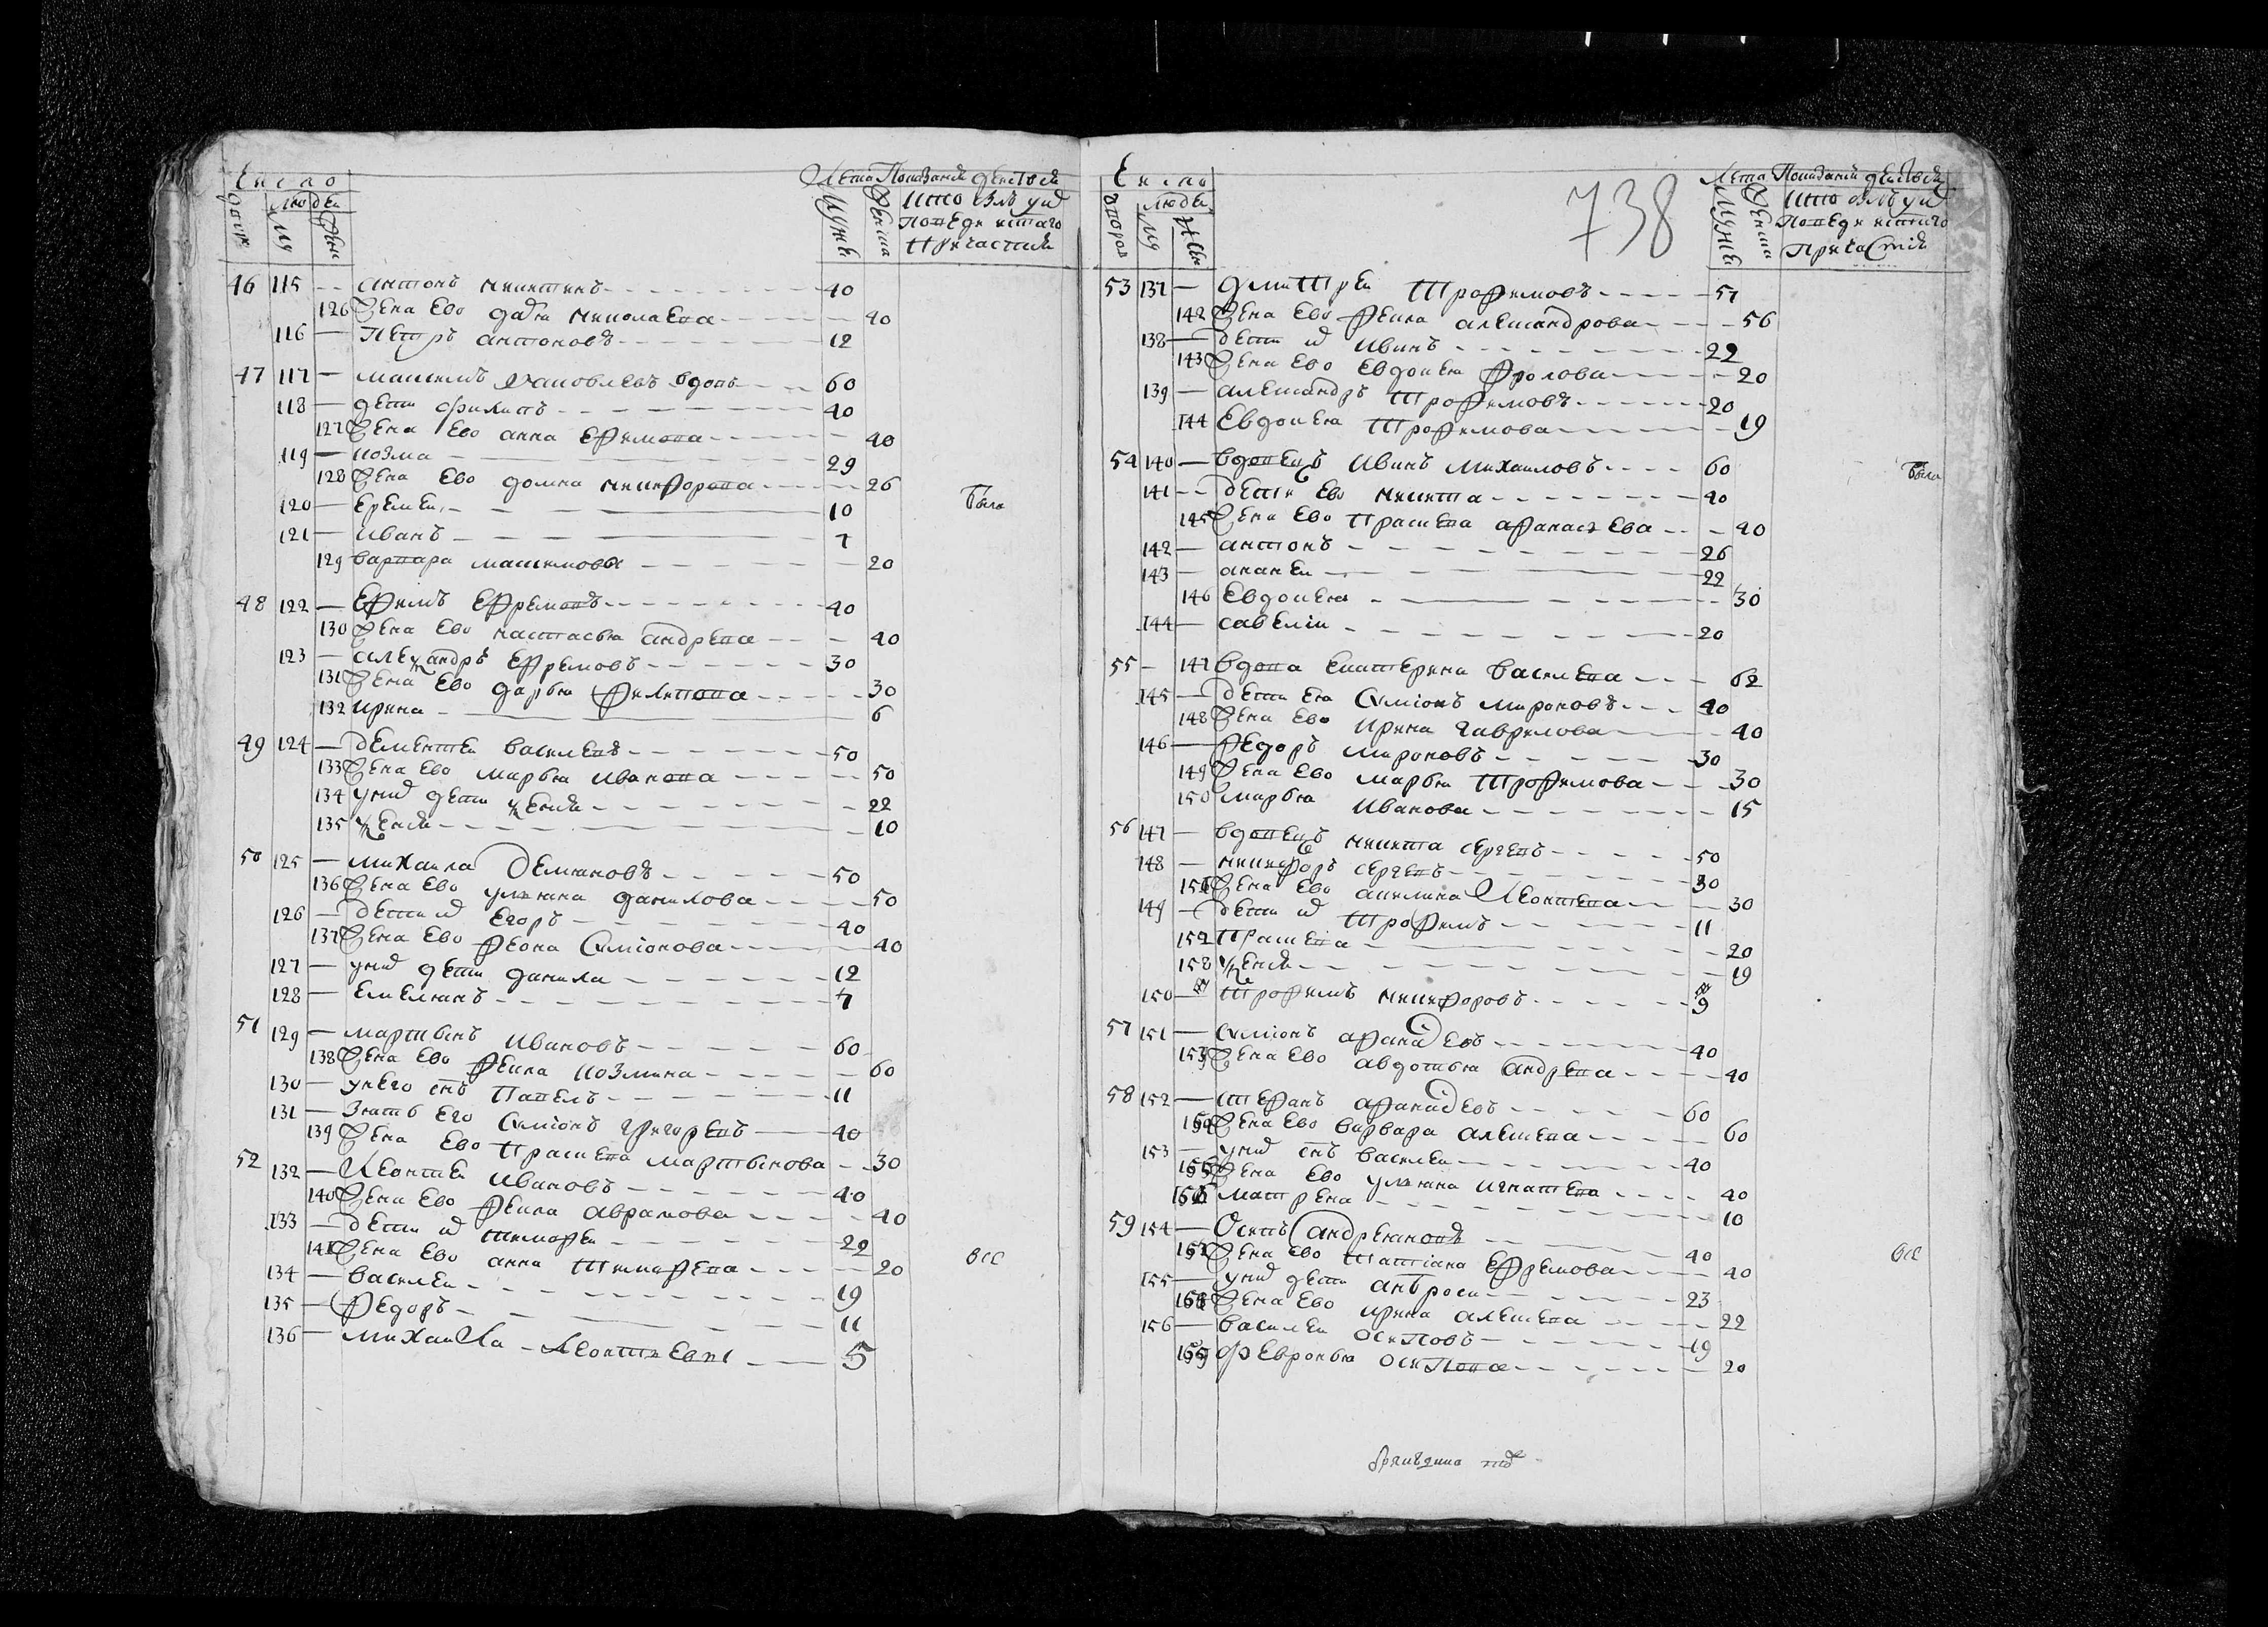 Число
Людеи
Лета
Мужеска
Женска
46 115 — антонъ никитинъ 40
126 Жена Ево дарья николаева 40
116 — Петръ антоновъ 12
47 117 — максимъ яковлевъ вдовъ 60
118 — дети филипъ 40
127 Жена Ево анна Ефимова 40
119 — козма 29
128 Жена Ево домна никифорова 26
120 — Еремеи 10
Были
121 — иванъ 7
129 варвара максимова 20
48 122 — Ефимъ Ефремовъ 40
130 Жена Ево настасья андреева 40
123 — александръ Ефремовъ 30
131 Жена Ево дарья Филипова 30
132 ирина 6
49 124 — дементеи василевъ 50
133 Жена Ево марья иванова 50
134 у них дети ксения 22
135 ксения 10
50 125 — михаила Демяновъ 50
136 Жена Ево ульяна данилова 50
126 — дети их Егоръ 40
137 Жена Ево Феона Симионова 40
127 — у них дети данила 12
128 — Емельянъ 7
51 129 — мартынъ ивановъ 60
138 Жена Ево Фекла козмина 60
130 — у него снъ Павелъ 11
131 — Зять Его Симионъ григоревъ 40
139 Жена Ево Прасковя мартынова 30
52 132 — Леонтеи ивановъ 40
140 Жена Ево Фекла аврамова 40
133 — дети их тимофеи 22
141 Жена Ево анна тимофева 20
все
134 — василеи 19
135 — Федоръ 11
136 — михаила Леонтиевъ 5
Число
738
Людеи
Лета
Мужеска
Женска
Причастия
53 137 — дмитреи трофимовъ 57
142 Жена Ево Фекла александрова 56
138 — дети их иванъ 22
143 Жена Ево Евдокея Фролова 20
139 — александръ трофимовъ 20
144 Евдокея трофимова 19
54 140 — вдовецъ иванъ михаиловъ 60
Были
141 — дети Ево никита 40
145 Жена Ево Прасковя афанасева 40
142 — антонъ 26
143 — ананеи 22
146 Евдокея 30
144 — савелии 20
55 — 147 вдова Екатерина василева 62
145 — дети ея Симионъ мироновъ 40
148 Жена Ево ирина гаврилова 40
146 — Федоръ мироновъ 30
149 Жена Ево марья трофимова 30
150 марья иванова 15
56 147 — вдовецъ никита сергевъ 50
148 — никифоръ сергевъ 30
151 Жена Ево акилина Леонтева 30
149 — дети их трофимъ 11
152 Прасковя 20
158 ксения 19
150 — трофимъ никифоровъ 9
57 151 — Симионъ афанасевъ 40
153 Жена Ево авдотья андреева 40
58 152 — стефанъ афанасевъ 60
Жена Ево варвара алексева 60
153 — у них снъ василеи 40
Жена Ево ульяна игнатева 40
матрена 10
59 154 — Осипъ андреяновъ 40
Жена Ево татиана Ефремова 40
все
155 — у них дети амбросеи 23
Жена Ево ирина алексева 22
156 — василеи осиповъ 19
Февронья осипова 20